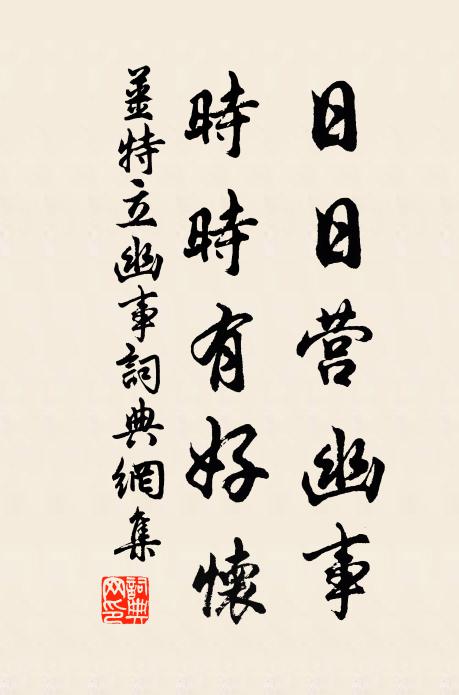 日日营幽事
時時有好懷
姜特立幽事詞典網集
詞典網印